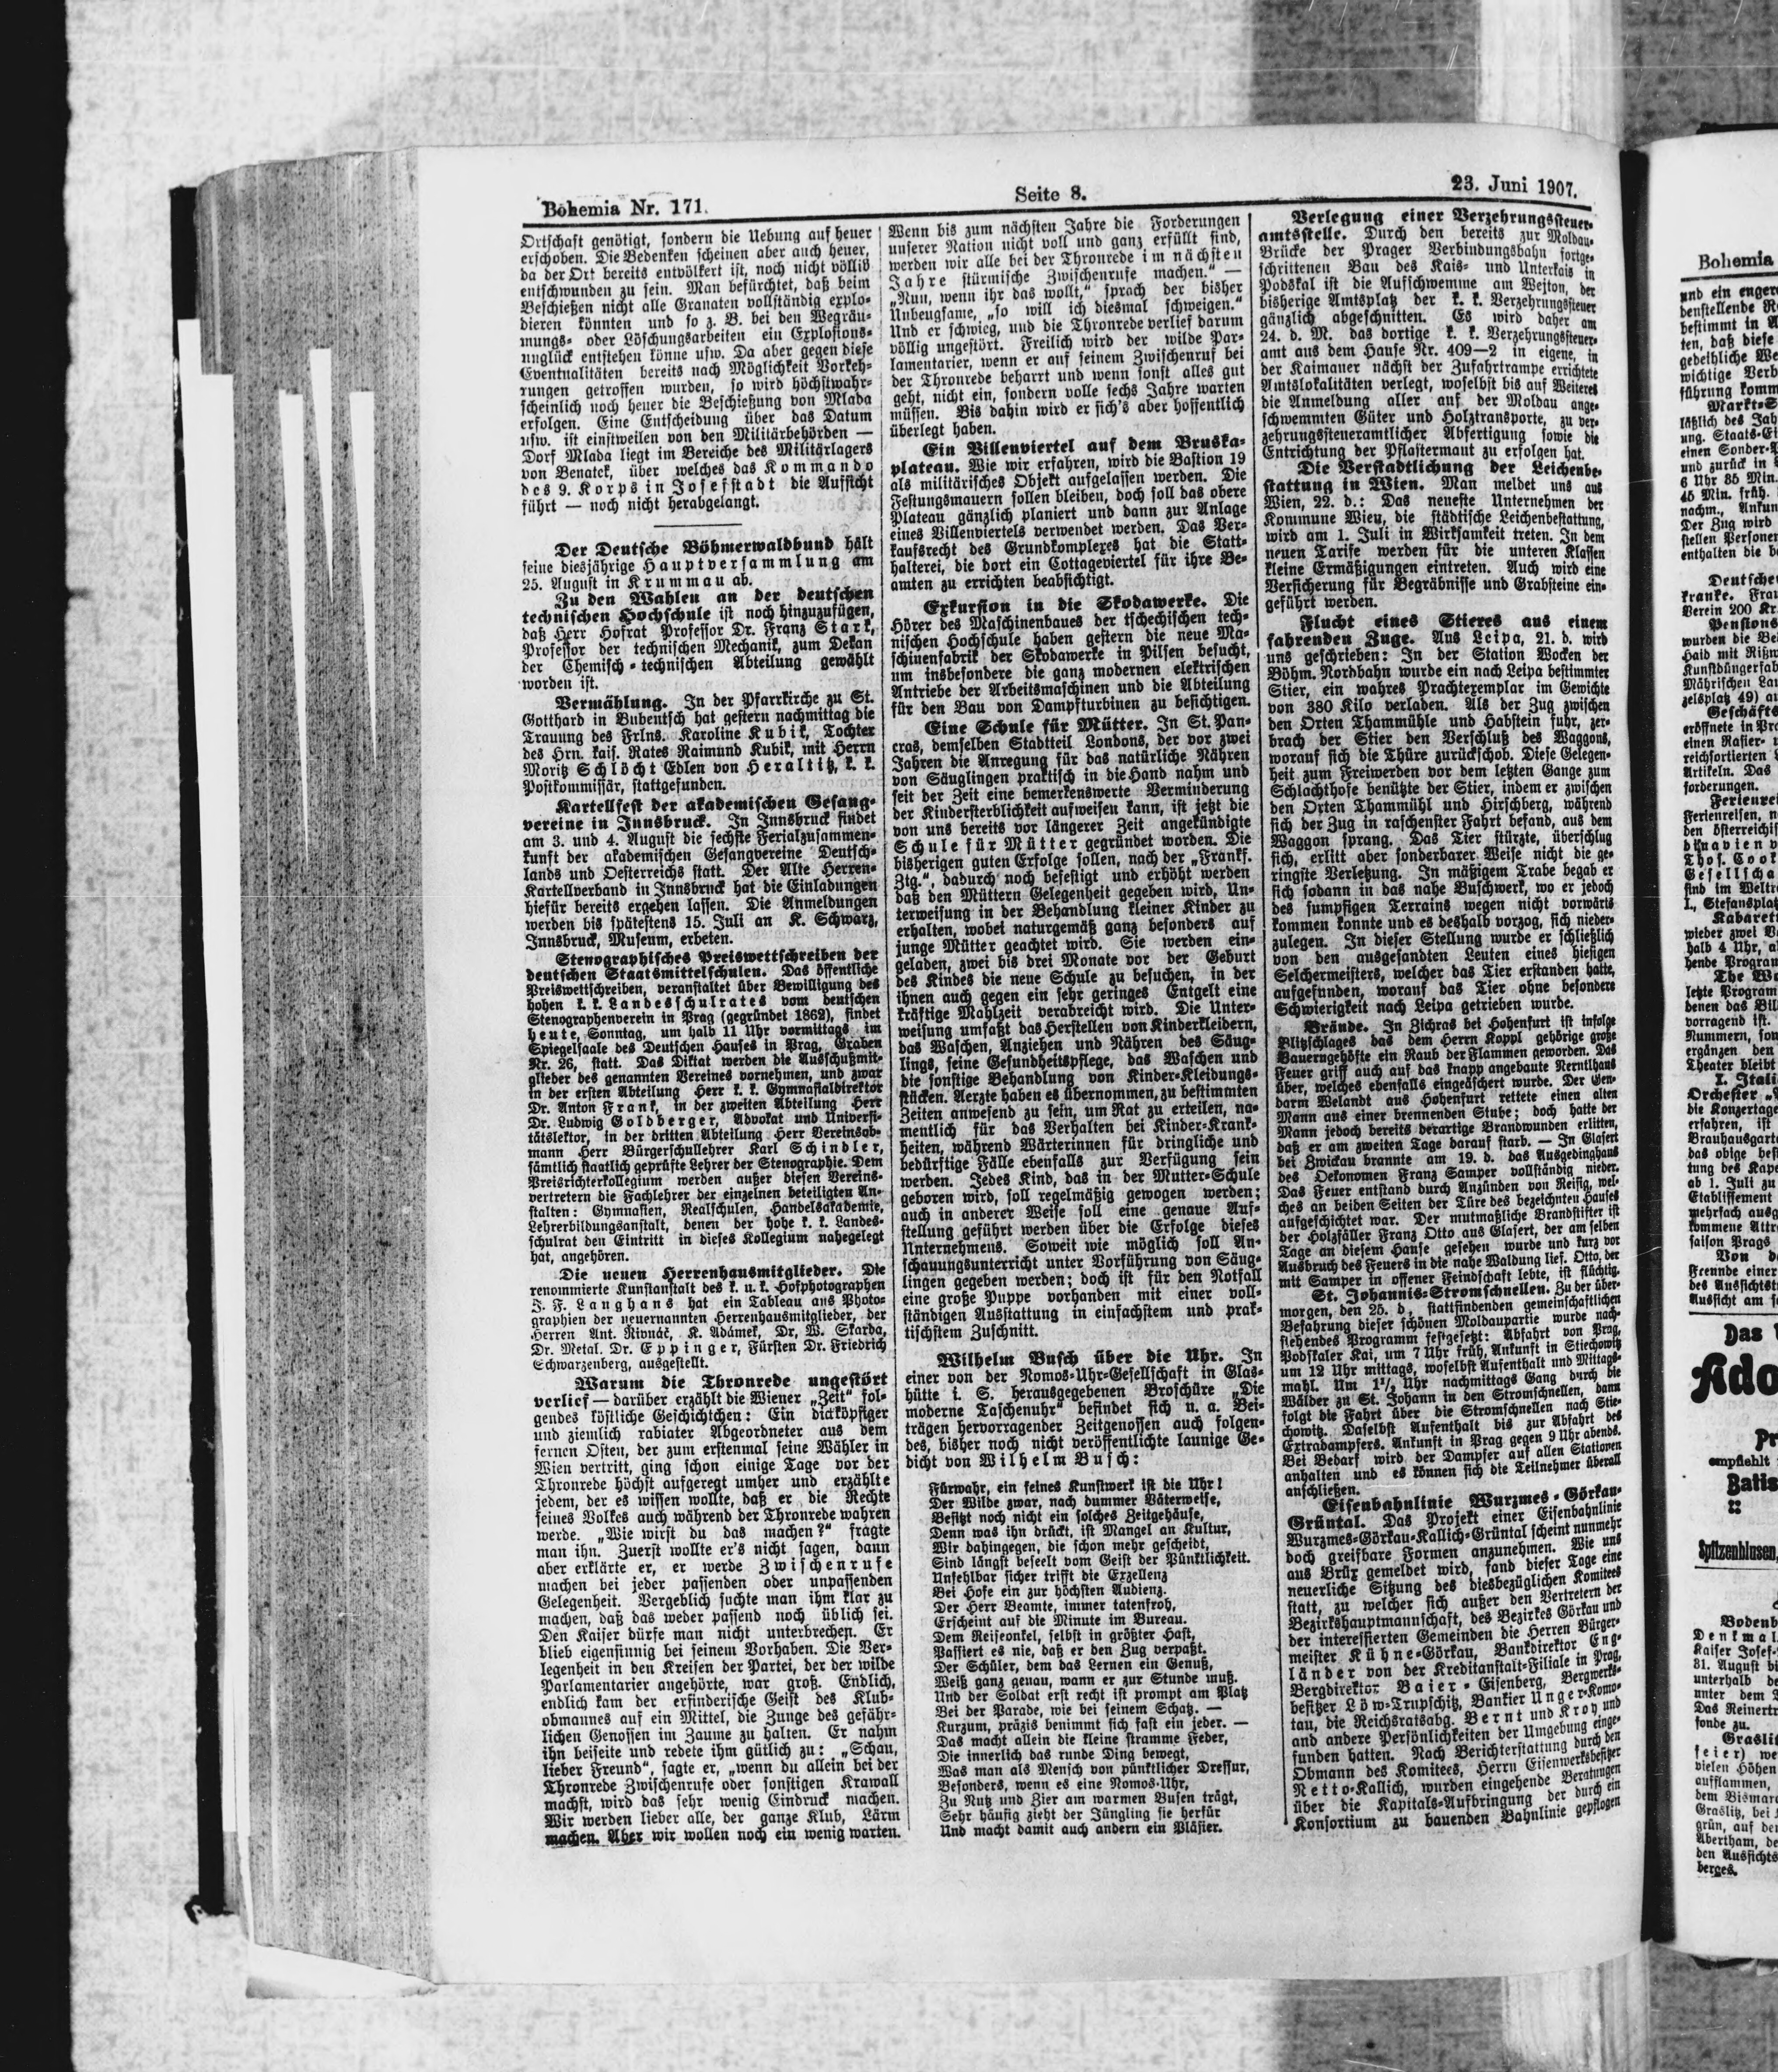 Bohemia Nr. 171.
Seite 8.
23. Juni 1907.
Ortschaft genötigt, sondern die Uebung auf heuer
erschoben. Die Bedenken scheinen aber auch heuer,
da der Ort bereits entvölkert ist, noch nicht völlig
entschwunden zu sein. Man befürchtet, daß beim
Beschießen nicht alle Granaten vollständig explo-
dieren könnten und so z. B. bei den Wegräu-
mungs- oder Löschungsarbeiten ein Explosions-
unglück entstehen könne usw. Da aber gegen diese
Eventualitäten bereits nach Möglichkeit Vorkeh-
rungen getroffen wurden, so wird höchstwahr-
scheinlich noch heuer die Beschießung von Mlada
erfolgen. Eine Entscheidung über das Datum
usw. ist einstweilen von den Militärbehörden —
Dorf Mlada liegt im Bereiche des Militärlagers
von Benatek, über welches das Kommando
des 9. Korps in Josefstadt die Aufsicht
führt — noch nicht herabgelangt.
Der Deutsche Böhmerwaldbund hält
seine diesjährige Hauptversammlung am
25. August in Krummau ab.
Zu den Wahlen an der deutschen
technischen Hochschule ist noch hinzuzufügen,
daß Herr Hofrat Professor Dr. Franz Stark,
Professor der technischen Mechanik, zum Dekan
der Chemisch-technischen Abteilung gewählt
worden ist.
Vermählung. In der Pfarrkirche zu St.
Gotthard in Bubentsch hat gestern nachmittag die
Trauung des Frlns. Karoline Kubik, Tochter
des Hrn. kais. Rates Raimund Kubik, mit Herrn
Moritz Schlöcht Edlen von Heraltitz, k. k.
Postkommissär, stattgefunden.
Kartellfest der akademischen Gesang-
vereine in Innsbruck. In Innsbruck findet
am 3. und 4. August die sechste Ferialzusammen-
kunft der akademischen Gesangvereine Deutsch-
lands und Oesterreichs statt. Der Alte Herren-
Kartellverband in Innsbruck hat die Einladungen
hiefür bereits ergehen lassen. Die Anmeldungen
werden bis spätestens 15. Juli an K. Schwarz,
Innsbruck, Museum, erbeten.
Stenographisches Preiswettschreiben der
deutschen Staatsmittelschulen. Das öffentliche
Preiswettschreiben, veranstaltet über Bewilligung des
hohen k. k. Landesschulrates vom deutschen
Stenographenverein in Prag (gegründet 1862), findet
heute, Sonntag, um halb 11 Uhr vormittags im
Spiegelsaale des Deutschen Hauses in Prag, Graben
Nr. 26, statt. Das Diktat werden die Ausschußmit-
glieder des genannten Vereines vornehmen, und zwar
in der ersten Abteilung Herr k. k. Gymnasialdirektor
Dr. Anton Frank, in der zweiten Abteilung Herr
Dr. Ludwig Goldberger, Advokat und Universi-
tätslektor, in der dritten Abteilung Herr Vereinsob-
mann Herr Bürgerschullehrer Karl Schindler,
sämtlich staatlich geprüfte Lehrer der Stenographie. Dem
Preisrichterkollegium werden außer diesen Vereins-
vertretern die Fachlehrer der einzelnen beteiligten An-
stalten: Gymnasien, Realschulen, Handelsakademie,
Lehrerbildungsanstalt, denen der hohe k. k. Landes-
schulrat den Eintritt in dieses Kollegium nahegelegt
hat, angehören.
Die neuen Herrenhausmitglieder. Die
renommierte Kunstanstalt des k. u. k. Hofphotographen
J. F. Langhans hat ein Tableau aus Photo-
graphien der neuernannten Herrenhausmitglieder, der
Herren Ant. Rivnáč, K. Adámek, Dr. W. Skarda,
Dr. Metal. Dr. Eppinger, Fürsten Dr. Friedrich
Schwarzenberg, ausgestellt.
Warum die Thronrede ungestört
verlief — darüber erzählt die Wiener „Zeit“ fol-
gendes köstliche Geschichtchen: Ein dickköpfiger
und ziemlich rabiater Abgeordneter aus dem
fernen Osten, der zum erstenmal seine Wähler in
Wien vertritt, ging schon einige Tage vor der
Thronrede höchst aufgeregt umher und erzählte
jedem, der es wissen wollte, daß er die Rechte
seines Volkes auch während der Thronrede wahren
werde. „Wie wirst du das machen?“ fragte
man ihn. Zuerst wollte er's nicht sagen, dann
aber erklärte er, er werde Zwischenrufe
machen bei jeder passenden oder unpassenden
Gelegenheit. Vergeblich suchte man ihm klar zu
machen, daß das weder passend noch üblich sei.
Den Kaiser dürfe man nicht unterbrechen. Er
blieb eigensinnig bei seinem Vorhaben. Die Ver-
legenheit in den Kreisen der Partei, der der wilde
Parlamentarier angehörte, war groß. Endlich,
endlich kam der erfinderische Geist des Klub-
obmannes auf ein Mittel, die Zunge des gefähr-
lichen Genossen im Zaume zu halten. Er nahm
ihn beiseite und redete ihm gütlich zu: „Schau,
lieber Freund“, sagte er, „wenn du allein bei der
Thronrede Zwischenrufe oder sonstigen Krawall
machst, wird das sehr wenig Eindruck machen.
Wir werden lieber alle, der ganze Klub, Lärm
machen. Aber wir wollen noch ein wenig warten.
Wenn bis zum nächsten Jahre die Forderungen
unserer Nation nicht voll und ganz erfüllt sind,
werden wir alle bei der Thronrede im nächsten
Jahre stürmische Zwischenrufe machen.“ —
„Nun, wenn ihr das wollt,“ sprach der bisher
Unbeugsame, „so will ich diesmal schweigen.“
Und er schwieg, und die Thronrede verlief darum
völlig ungestört. Freilich wird der wilde Par-
lamentarier, wenn er auf seinem Zwischenruf bei
der Thronrede beharrt und wenn sonst alles gut
geht, nicht ein, sondern volle sechs Jahre warten
müssen. Bis dahin wird er sich's aber hoffentlich
überlegt haben.
Ein Villenviertel auf dem Bruska-
plateau. Wie wir erfahren, wird die Bastion 19
als militärisches Objekt aufgelassen werden. Die
Festungsmauern sollen bleiben, doch soll das obere
Plateau gänzlich planiert und dann zur Anlage
eines Villenviertels verwendet werden. Das Ver-
kaufsrecht des Grundkomplexes hat die Statt-
halterei, die dort ein Cottageviertel für ihre Be-
amten zu errichten beabsichtigt.
Exkursion in die Skodawerke. Die
Hörer des Maschinenbaues der tschechischen tech-
nischen Hochschule haben gestern die neue Ma-
schinenfabrik der Skodawerke in Pilsen besucht,
um insbesondere die ganz modernen elektrischen
Antriebe der Arbeitsmaschinen und die Abteilung
für den Bau von Dampfturbinen zu besichtigen.
Eine Schule für Mütter. In St. Pan-
cras, demselben Stadtteil Londons, der vor zwei
Jahren die Anregung für das natürliche Nähren
von Säuglingen praktisch in die Hand nahm und
seit der Zeit eine bemerkenswerte Verminderung
der Kindersterblichkeit aufweisen kann, ist jetzt die
von uns bereits vor längerer Zeit angekündigte
Schule für Mütter gegründet worden. Die
bisherigen guten Erfolge sollen, nach der „Frankf.
Ztg.“, dadurch noch befestigt und erhöht werden
daß den Müttern Gelegenheit gegeben wird, Un-
terweisung in der Behandlung kleiner Kinder zu
erhalten, wobei naturgemäß ganz besonders auf
junge Mütter geachtet wird. Sie werden ein-
geladen, zwei bis drei Monate vor der Geburt
des Kindes die neue Schule zu besuchen, in der
ihnen auch gegen ein sehr geringes Entgelt eine
kräftige Mahlzeit verabreicht wird. Die Unter-
weisung umfaßt das Herstellen von Kinderkleidern,
das Waschen, Anziehen und Nähren des Säug-
lings, seine Gesundheitspflege, das Waschen und
die sonstige Behandlung von Kinder-Kleidungs-
stücken. Aerzte haben es übernommen, zu bestimmten
Zeiten anwesend zu sein, um Rat zu erteilen, na-
mentlich für das Verhalten bei Kinder-Krank-
heiten, während Wärterinnen für dringliche und
bedürftige Fälle ebenfalls zur Verfügung sein
werden. Jedes Kind, das in der Mutter-Schule
geboren wird, soll regelmäßig gewogen werden;
auch in anderer Weise soll eine genaue Auf-
stellung geführt werden über die Erfolge dieses
Unternehmens. Soweit wie möglich soll An-
schauungsunterricht unter Vorführung von Säug-
lingen gegeben werden; doch ist für den Notfall
eine große Puppe vorhanden mit einer voll-
ständigen Ausstattung in einfachstem und prak-
tischstem Zuschnitt.
Wilhelm Busch über die Uhr. In
einer von der Nomos-Uhr-Gesellschaft in Glas-
hütte i. S. herausgegebenen Broschüre „Die
moderne Taschenuhr“ befindet sich u. a. Bei-
trägen hervorragender Zeitgenossen auch folgen-
des, bisher noch nicht veröffentlichte launige Ge-
dicht von Wilhelm Busch:
Fürwahr, ein feines Kunstwerk ist die Uhr!
Der Wilde zwar, nach dummer Väterweise,
Besitzt noch nicht ein solches Zeitgehäuse,
Denn was ihn drückt, ist Mangel an Kultur,
Wir dahingegen, die schon mehr gescheidt,
Sind längst beseelt vom Geist der Pünktlichkeit.
Unfehlbar sicher trifft die Exzellenz
Bei Hofe ein zur höchsten Audienz.
Der Herr Beamte, immer tatenfroh,
Erscheint auf die Minute im Bureau.
Dem Reiseonkel, selbst in größter Hast,
Passiert es nie, daß er den Zug verpaßt.
Der Schüler, dem das Lernen ein Genuß,
Weiß ganz genau, wann er zur Stunde muß.
Und der Soldat erst recht ist prompt am Platz
Bei der Parade, wie bei seinem Schatz. —
Kurzum, präzis benimmt sich fast ein jeder. —
Das macht allein die kleine stramme Feder,
Die innerlich das runde Ding bewegt,
Was man als Mensch von pünktlicher Dressur,
Besonders, wenn es eine Nomos-Uhr,
Zu Nutz und Zier am warmen Busen trägt,
Sehr häufig zieht der Jüngling sie herfür
Und macht damit auch andern ein Pläsier.
Verlegung einer Verzehrungssteuer-
amtsstelle. Durch den bereits zur Moldau-
Brücke der Prager Verbindungsbahn fortge-
schrittenen Bau des Kais- und Unterkais in
Podskal ist die Aufschwemme am Wejton, der
bisherige Amtsplatz der k. k. Verzehrungssteuer
gänzlich abgeschnitten. Es wird daher am
24. d. M. das dortige k. k. Verzehrungssteuer-
amt aus dem Hause Nr. 409—2 in eigene, in
der Kaimauer nächst der Zufahrtrampe errichtete
Amtslokalitäten verlegt, woselbst bis auf Weiteres
die Anmeldung aller auf der Moldau ange-
schwemmten Güter und Holztransporte, zu ver-
zehrungssteueramtlicher Abfertigung sowie die
Entrichtung der Pflastermaut zu erfolgen hat.
Die Verstadtlichung der Leichenbe-
stattung in Wien. Man meldet uns aus
Wien, 22. d.: Das neueste Unternehmen der
Kommune Wien, die städtische Leichenbestattung,
wird am 1. Juli in Wirksamkeit treten. In dem
neuen Tarife werden für die unteren Klassen
kleine Ermäßigungen eintreten. Auch wird eine
Versicherung für Begräbnisse und Grabsteine ein-
geführt werden.
Flucht eines Stieres aus einem
fahrenden Zuge. Aus Leipa, 21. d. wird
uns geschrieben: In der Station Wocken der
Böhm. Nordbahn wurde ein nach Leipa bestimmter
Stier, ein wahres Prachtexemplar im Gewichte
von 380 Kilo verladen. Als der Zug zwischen
den Orten Thammühle und Habstein fuhr, zer-
brach der Stier den Verschluß des Waggons,
worauf sich die Thüre zurückschob. Diese Gelegen-
heit zum Freiwerden vor dem letzten Gange zum
Schlachthofe benützte der Stier, indem er zwischen
den Orten Thammühl und Hirschberg, während
sich der Zug in raschester Fahrt befand, aus dem
Waggon sprang. Das Tier stürzte, überschlug
sich, erlitt aber sonderbarer Weise nicht die ge-
ringste Verletzung. In mäßigem Trabe begab er
sich sodann in das nahe Buschwerk, wo er jedoch
des sumpfigen Terrains wegen nicht vorwärts
kommen konnte und es deshalb vorzog, sich nieder-
zulegen. In dieser Stellung wurde er schließlich
von den ausgesandten Leuten eines hiesigen
Selchermeisters, welcher das Tier erstanden hatte,
aufgefunden, worauf das Tier ohne besondere
Schwierigkeit nach Leipa getrieben wurde.
Brände. In Zichras bei Hohenfurt ist infolge
Blitzschlages das dem Herrn Koppl gehörige große
Bauerngehöfte ein Raub der Flammen geworden. Das
Feuer griff auch auf das knapp angebaute Nerntlhaus
über, welches ebenfalls eingeäschert wurde. Der Gen-
darm Welandt aus Hohenfurt rettete einen alten
Mann aus einer brennenden Stube; doch hatte der
Mann jedoch bereits derartige Brandwunden erlitten,
daß er am zweiten Tage darauf starb. — In Glasert
bei Zwickau brannte am 19. d. das Ausgedinghaus
des Oekonomen Franz Samper vollständig nieder.
Das Feuer entstand durch Anzünden von Reisig, wel-
ches an beiden Seiten der Türe des bezeichneten Hauses
aufgeschichtet war. Der mutmaßliche Brandstifter ist
der Holzfäller Franz Otto aus Glasert, der am selben
Tage an diesem Hause gesehen wurde und kurz vor
Ausbruch des Feuers in die nahe Waldung lief. Otto, der
mit Samper in offener Feindschaft lebte, ist flüchtig.
St. Johannis-Stromschnellen. Zu der über-
morgen, den 25. d., stattfindenden gemeinschaftlichen
Befahrung dieser schönen Moldaupartie wurde nach-
stehendes Programm festgesetzt: Abfahrt von Prag,
Podskaler Kai, um 7 Uhr früh, Ankunft in Stiechowitz
um 12 Uhr mittags, woselbst Aufenthalt und Mittags-
mahl. Um 1½ Uhr nachmittags Gang durch die
Wälder zu St. Johann in den Stromschnellen, dann
folgt die Fahrt über die Stromschnellen nach Stie-
chowitz. Daselbst Aufenthalt bis zur Abfahrt des
Extradampfers. Ankunft in Prag gegen 9 Uhr abends.
Bei Bedarf wird der Dampfer auf allen Stationen
anhalten und es können sich die Teilnehmer überall
anschließen.
Eisenbahnlinie Wurzmes-Görkau-
Grüntal. Das Projekt einer Eisenbahnlinie
Wurzmes-Görkau-Kallich-Grüntal scheint nunmehr
doch greifbare Formen anzunehmen. Wie uns
aus Brüx gemeldet wird, fand dieser Tage eine
neuerliche Sitzung des diesbezüglichen Komitees
statt, zu welcher sich außer den Vertretern der
Bezirkshauptmannschaft, des Bezirkes Görkau und
der interessierten Gemeinden die Herren Bürger-
meister Kühne-Görkau, Bankdirektor Eng-
länder von der Kreditanstalt-Filiale in Prag,
Bergdirektor Baier-Eisenberg, Bergwerks-
besitzer Löw-Trupschitz, Bankier Unger-Komo-
tau, die Reichsratsabg. Bernt und Kroy und
and andere Persönlichkeiten der Umgebung einge-
funden hatten. Nach Berichterstattung durch den
Obmann des Komitees, Herrn Eisenwerksbesitzer
Netto-Kallich, wurden eingehende Beratungen
über die Kapitals-Aufbringung der durch ein
Konsortium zu bauenden Bahnlinie gepflogen
Bohemia
und ein engere
bestimmt in
ten, daß diese
gedeihliche We
wichtige Verb
führung komm
Markt-S
läßlich des Jah
ung. Staats-Ei
einen Sonder-P
und zurück in
6 Uhr 35 Min.
45 Min. früh.
nachm., Ankun
Der Zug wird
stellen Personen
enthalten die b
Deutsche
kranke. Frau
Verein 200 Kr.
Pensions
wurden die Be
Haid mit
Kunstdüngerfab
Mährischen La
zelsplatz 49) au
Geschäfts
eröffnete in Pra
einen Rasier- u
reichsortierten
Artikeln. Das
forderungen.
Ferienrei
Ferienreisen, n
den österreichis
dinavien v
Thos. Cook
Gesellscha
sind im Weltre
I., Stefansplatz
Kabarett
wieder zwei V
halb 4 Uhr, a
hende Program
The Wo
letzte Program
denen das Bil
vorragend ist.
Nummern, son
ergänzen den
Theater bleibt
I. Itali
Orchester „
die Konzertage
erfahren, ist
Brauhausgarte
das obige best
tung des Kape
ab 1. Juli zu
Etablissement
mehrfach ausg
kommene Attr
saison Prags
Von d
Freunde einer
des Aussichts
Aussicht am s
Das
Ado
Pr
empfiehlt
Batis
Spitzenblusen,
Bodenb
Denkmal
Kaiser Josef-
31. August bi
unterhalb de
unter dem
Das Reinertr
fonde zu.
Graslit
feier) we
vielen Höhen
aufflammen,
dem Bismarc
Graslitz, bei
grün, auf de
Abertham, de
den Aussichts
berges.